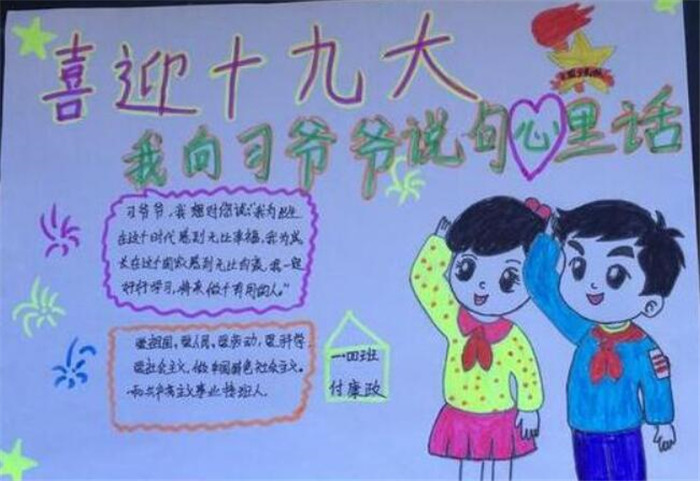 喜迎十九大
我向习爷爷说句心里话
习爷爷,我想对你说:"我为出生
在这个时代感到无比幸福,我为成
长在这个国家感到无比自豪,我一定
好好学习,将来做个有用的人。"
爱祖国,爱人民,爱劳动,爱科学,
爱社会主义,做中国特色社会主义
和共产主义事业接班人。
一四班
付康政